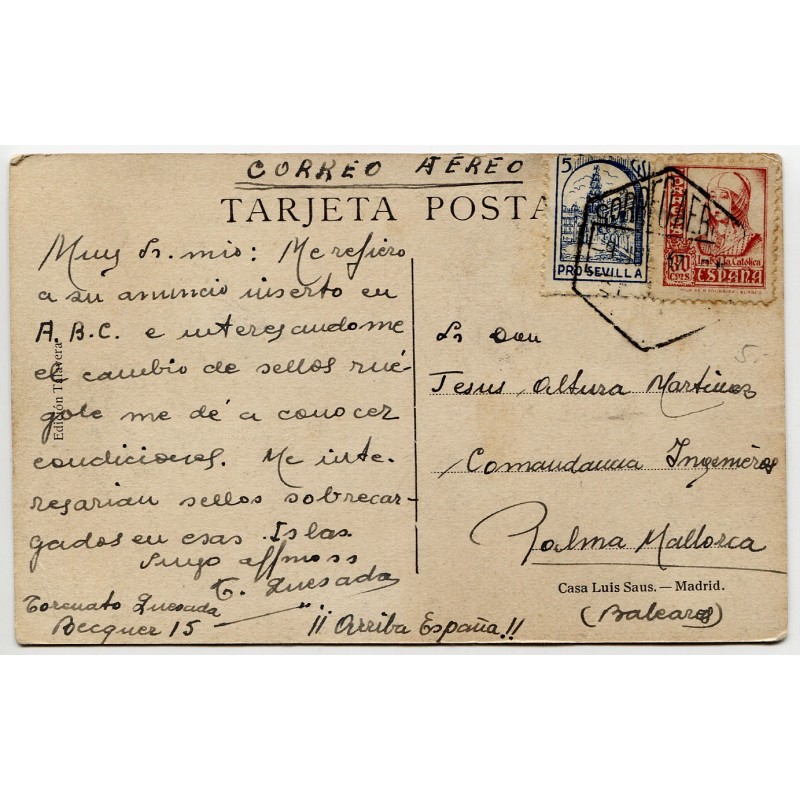 CORREO AEREO
TARJETA POSTA
5
PRO SEVILLA
CORREOS
Isabel la Católica
30
CTS
ESPAÑA
Muy Sr. mio: Me refiero
a su anuncio inserto en
A.B.C. e interesandome
el cambio de sellos rué-
gole me dé a conocer
condiciones. Me inte-
resarian sellos sobrecar-
gados en esas Islas.
Suyo affmo ss
T. Quesada
Torcuato Quesada
Becquer 15
¡¡Arriba España!!
Edición Talavera.
5
Sr Don
Jesus Altura Martinez
Comandancia Ingenieros
Palma Mallorca
Casa Luis Saus. — Madrid.
(Baleares)